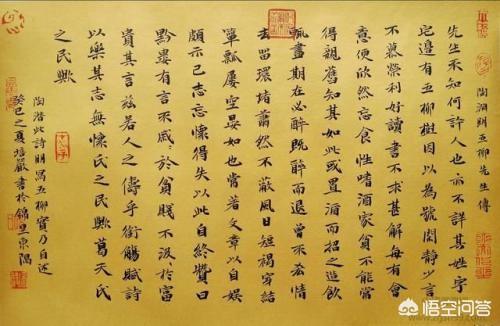 陶淵明五柳先生傳
先生不知何許人也亦不詳其姓字
宅邊有五柳樹因以為號閑靜少言
不慕榮利好讀書不求甚解每有會
意便欣然忘食性嗜酒家貧不能常
得親舊知其如此或置酒而招之造飲
輒盡期在必醉既醉而退曾不吝情
去留環堵蕭然不蔽風日短褐穿結
簞瓢屢空晏如也常著文章以自娛
頗示己志忘懷得失以此自終贊曰
黔婁有言不戚〻於貧賤不汲〻於富
貴其言茲若人之儔乎銜觴賦詩
以樂其志無懷氏之民歟葛天氏
之民歟
陶潛此詩明寫五柳實乃自述
癸巳之夏培嚴書於錦里東隅
悟空问答